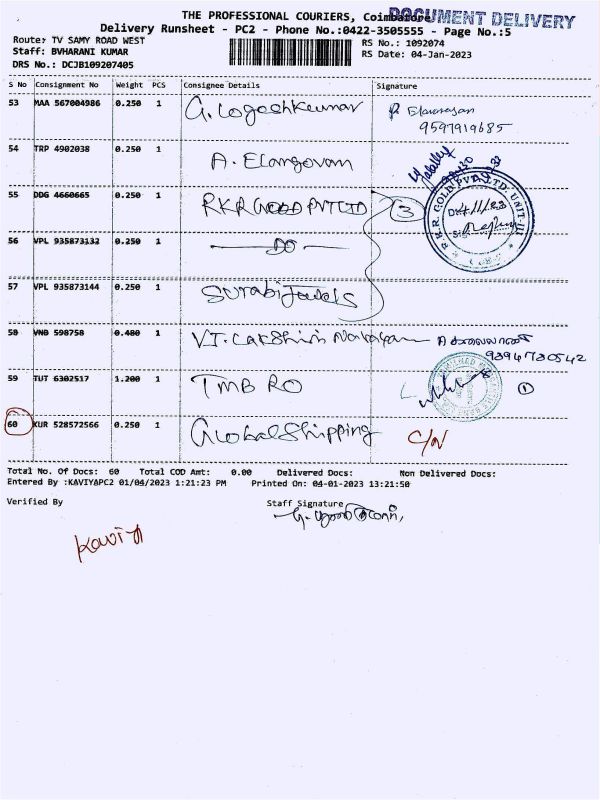 THE PROFESSIONAL COURIERS, Coimbatore
DOCUMENT DELIVERY
Delivery Runsheet - PC2 - Phone No.:0422-3505555 - Page No.:5
Route: TV SAMY ROAD WEST
Staff: BVHARANI KUMAR
DRS No.: DCJB109207405
RS No.: 1092074
RS Date: 04-Jan-2023
S No Consignment No Weight PCS Consignee Details Signature
53 MAA 567004986 0.250 1 G. Logeshkumar
9597919685
54 TRP 4902038 0.250 1 A. Elangovan
55 DDG 4660665 0.250 1 RKR GOLD PVT LTD 3
R.K.R. GOLD PVT. LTD. UNIT-III
56 VPL 935873132 0.250 1 DO
57 VPL 935873144 0.250 1 Surabi Jewels
58 VNB 598758 0.480 1
9394730542
59 TUT 6302517 1.200 1 TMB RO 1
60 KUR 528572566 0.250 1 Global Shipping C/N
Total No. Of Docs: 60 Total COD Amt: 0.00 Delivered Docs: Non Delivered Docs:
Entered By :KAVIYAPC2 01/04/2023 1:21:23 PM Printed On: 04-01-2023 13:21:50
Verified By Staff Signature
Kaviya